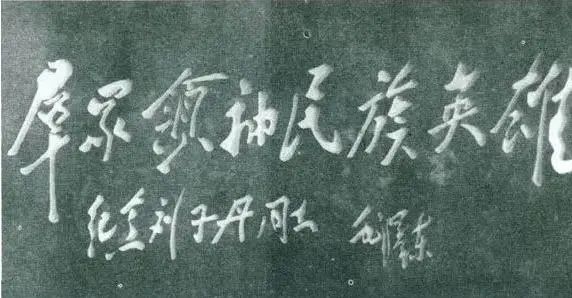 群众领袖民族英雄
纪念刘子丹同志 毛泽东